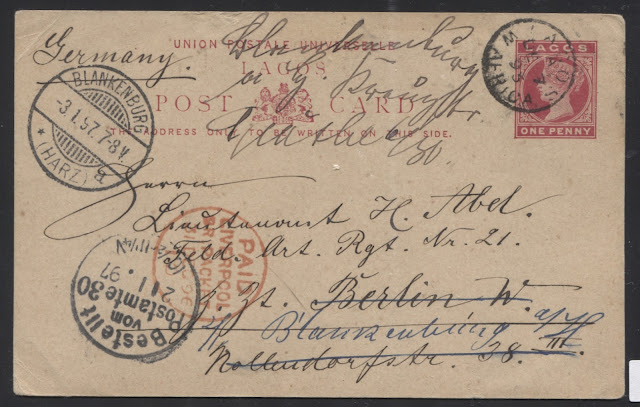 Germany.
UNION POSTALE UNIVERSELLE
LAGOS
POST CARD
THE ADDRESS ONLY TO BE WRITTEN ON THIS SIDE.
LAGOS
ONE PENNY
LAGOS
W. AFRICA
Blankenburg
BLANKENBURG
3.1.97.7-8V.
* (HARZ) a
Herrn
Lieutenant H. Abel.
Feld. Art. Rgt. Nr. 21.
PAID
LIVERPOOL
BR PACKET
z. Zt. Berlin W.
Blankenburg a/H
Nollendorfstr. 28. III.
Bestellt
vom
Postamte 30
2 1. 97